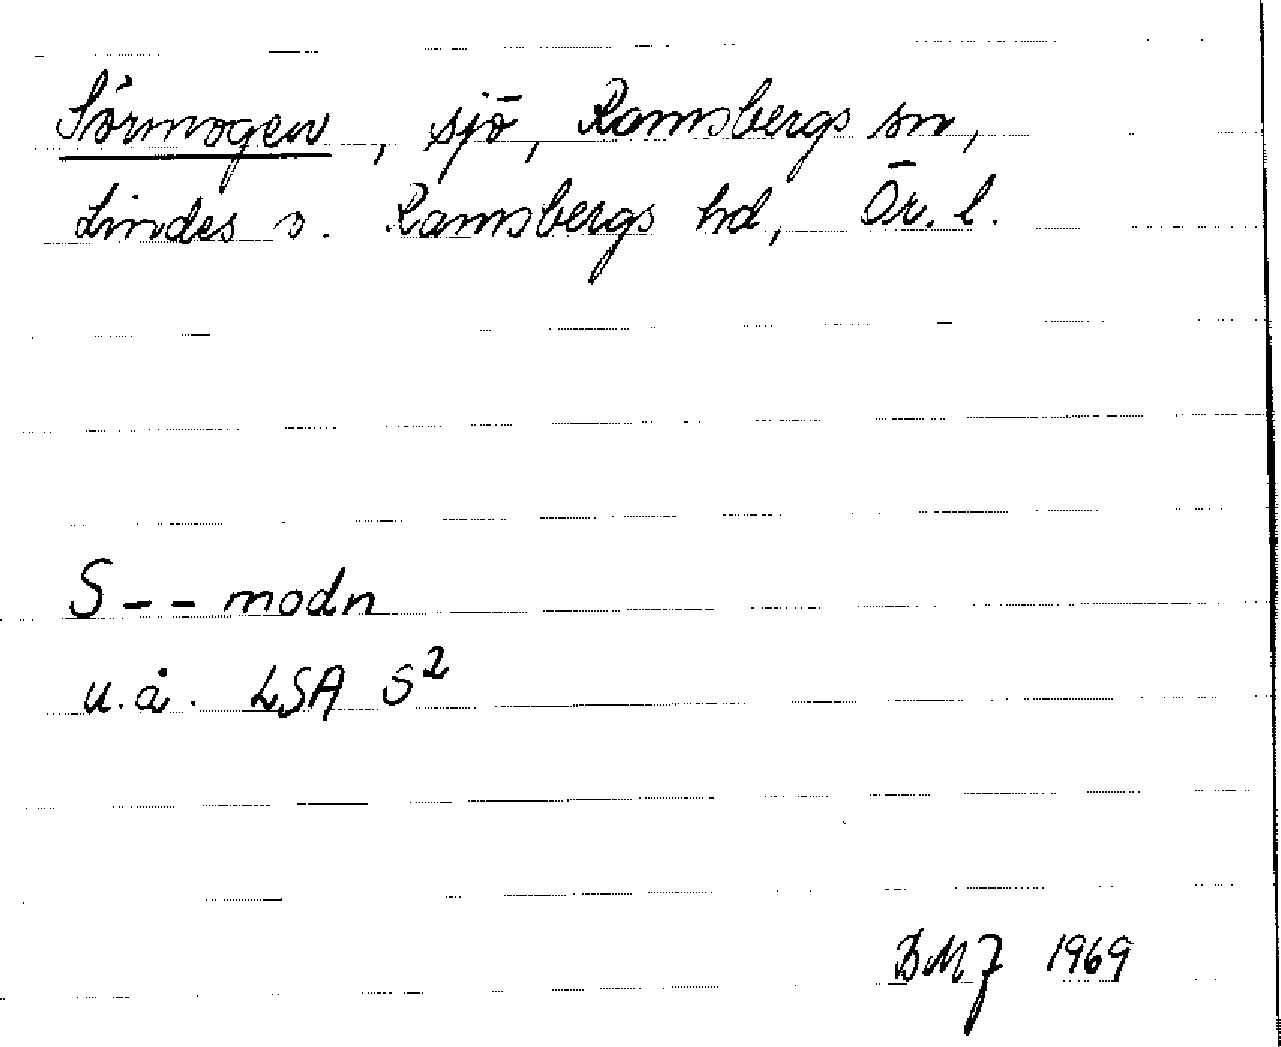 Sörmogen, sjö, Ramsbergs sn,
Lindes o. Ramsbergs hd, Ör. l.
S - - modn
u.å. LSA S²
BMJ 1969